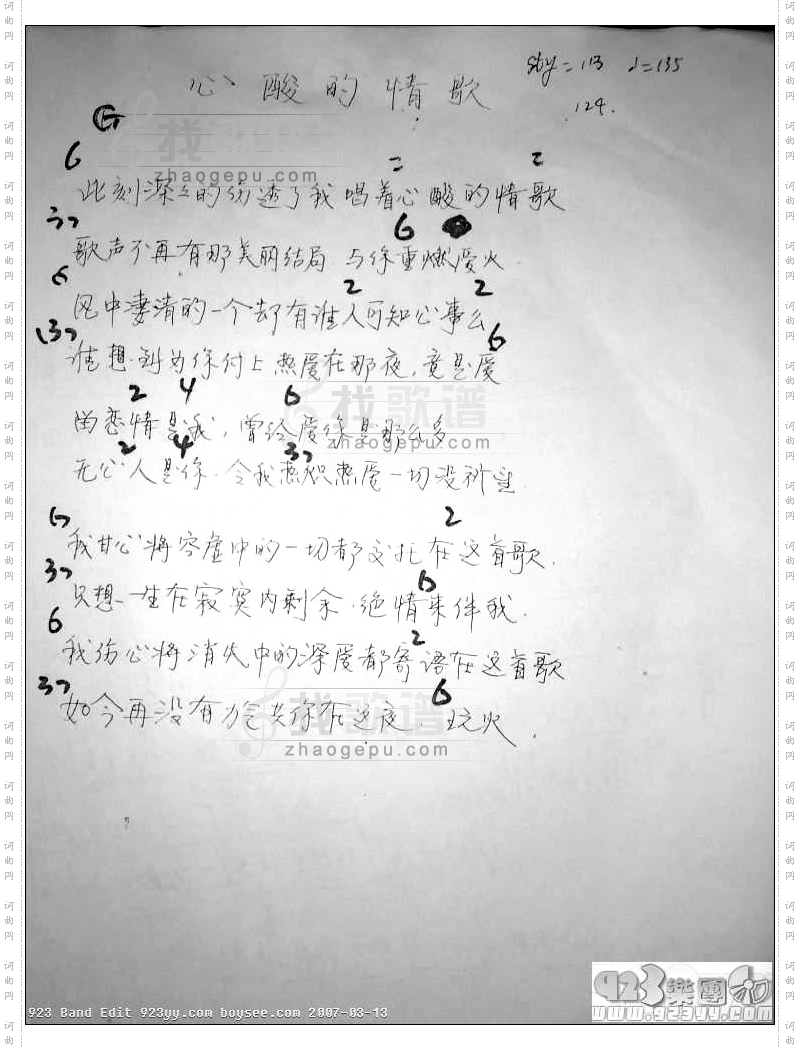 心酸的情歌
sty=113 ♩=135
124.
G
6 2 2
此刻深深的伤透了我唱着心酸的情歌
37 6
歌声不再有那美丽结局 与你重燃爱火
6 2 2
风中凄清的一个却有谁人可知心事么
(37 6
谁想到为你付上热爱在那夜,竟是爱
2 4 6
曲恋情是我,曾给爱你是那么多
2 4 37
无心人是你.令我热炽热爱一切没祈望
6 2
我甘心将容虚中的一切都交托在这首歌.
37 6
只想一生在寂寞内剩余.绝情来伴我.
6 2
我伤心将消失中的深爱都寄语在这首歌
37 6
如今再没有力气共你在这夜 玩火.
找歌谱
zhaogepu.com
找歌谱
zhaogepu.com
找歌谱
zhaogepu.com
923 Band Edit 923yy.com boysee.com 2007-03-13
923樂團
www.923yy.com
词曲网